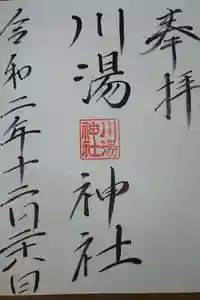 奉拝
川湯神社
川湯
神社
令和二年十二月二六日